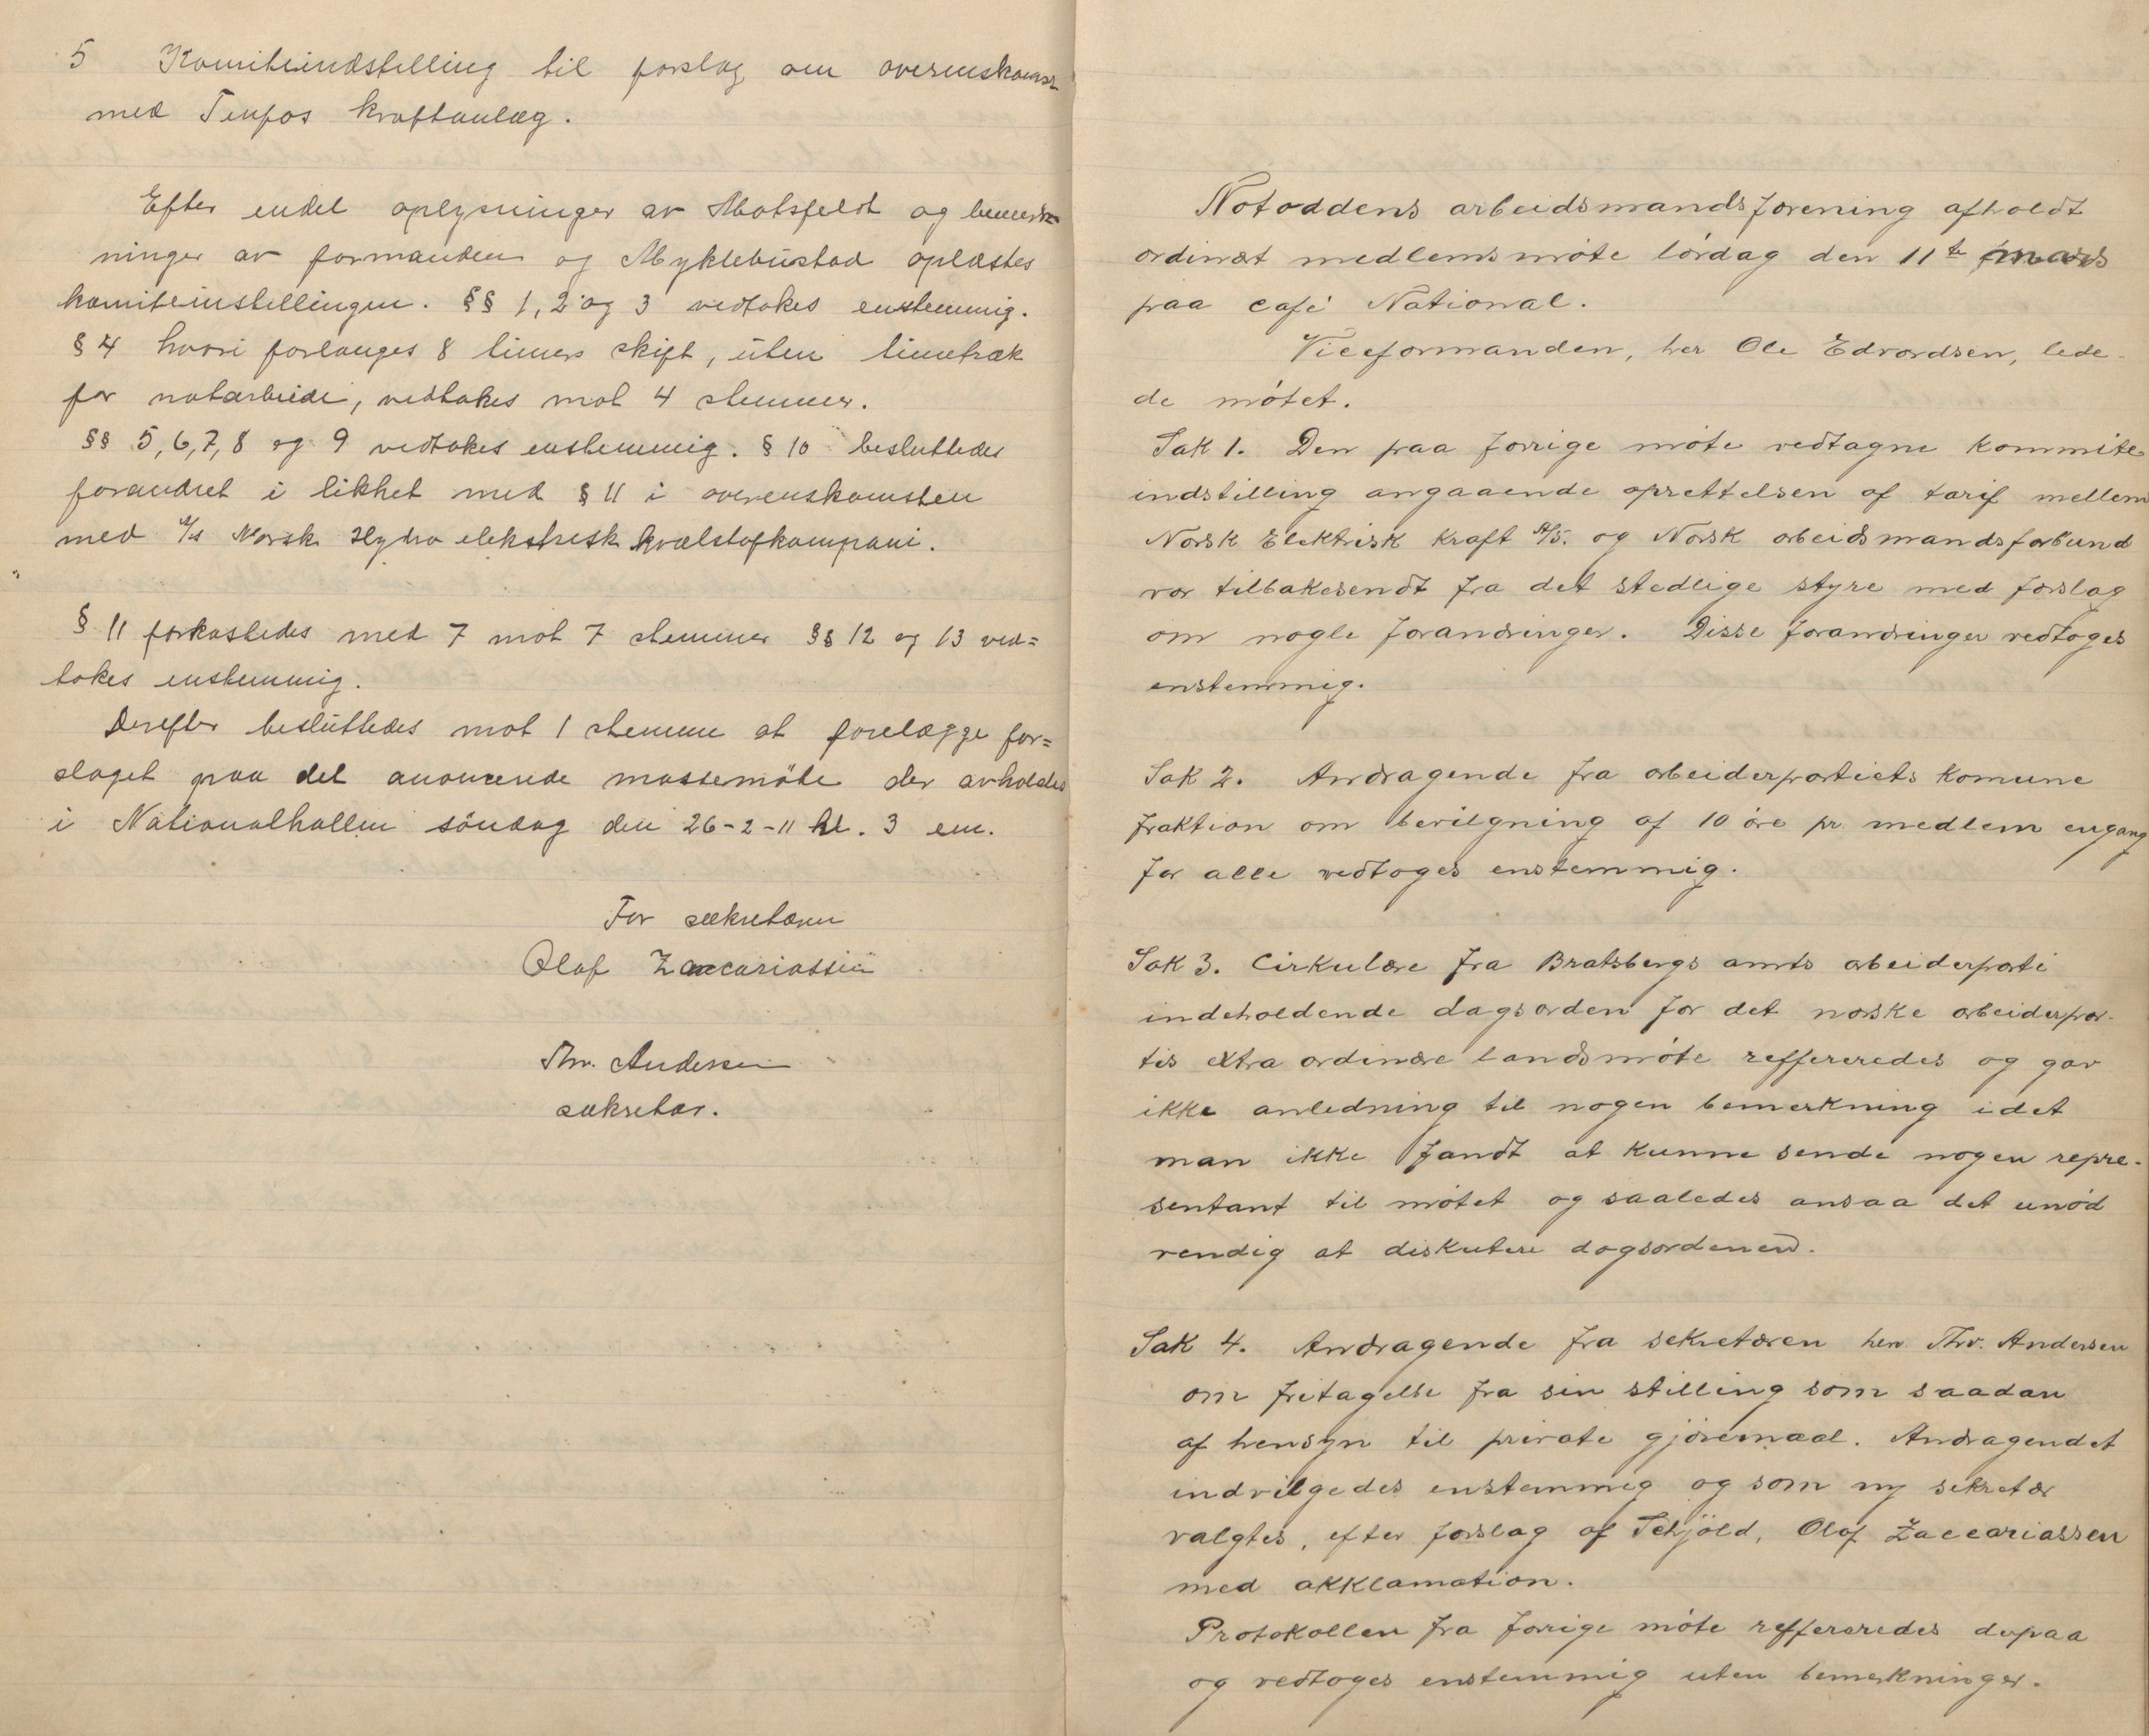 5 Komiteindstelling til forslag om overenskomst
med Tinfos kraftanlæg.
Efter endel oplysninger av Motsfeldt og bemerk-
ninger av formanden og Myklebustad oplæstes
komiteinstellingen. §§ 1, 2 og 3 vedtokes enstemmig.
§ 4 hvori forlanges 8 timers skift, uten timetræk
for natarbeide, vedtokes mot 4 stemmer.
§§ 5, 6, 7, 8 og 9 vedtokes enstemmig. § 10 besluttedes
forandret i likhet med § 11 i overenskomsten
med A/s Norsk Hydro elekstrisk kvælstofkompani.
§ 11 forkastedes med 7 mot 7 stemmer §§ 12 og 13 ved=
tokes enstemmig.
Derefter besluttedes mot 1 stemme at forelægge for=
slaget paa det anoncerede massemöte der avholdes
i Nationalhallen söndag den 26-2-11 kl. 3 em.
For sekretæren
Olaf Zaccariassen
Thv. Andersen
sekretær.
Notoddens arbeidsmandsforening afholdt
ordinært medlemsmöte lördag den 11te mars
paa café National.
Viceformanden, her Ole Edvardsen, lede-
de mötet.
Sak 1. Den paa forrige möte vedtagne kommite
indstilling angaaende oprettelsen af tarif mellem
Norsk Elektrisk Kraft A/S. og Norsk arbeidsmandsforbund
var tilbakesendt fra det stedlige styre med forslag
om nogle forandringer. Disse forandringer vedtoges
enstemmig.
Sak 2. Andragende fra arbeiderpartiets komune
fraktion om bevilgning af 10 öre pr medlem engang
for alle vedtoges enstemmig.
Sak 3. Cirkulære fra Bratsbergs amts arbeiderparti
indeholdende dagsorden for det norske arbeiderpar-
tis extra ordinære landsmöte reffereredes og gav
ikke anledning til nogen bemerkning idet
man ikke fandt at kunne sende nogen repre-
sentant til mötet og saaledes ansaa det unöd
vendig at diskutere dagsordenen.
Sak 4. Andragende fra sekretæren herr Thv. Andersen
om fritagelse fra sin stilling som saadan
af hensyn til private gjöremaal. Andragendet
indvilgedes enstemmig og som ny sekretær
valgtes, efter forslag af Schjöld, Olaf Zaccariassen
med akklamation.
Protokollen fra forrige möte reffereredes derpaa
og vedtoges enstemmig uten bemerkninger.